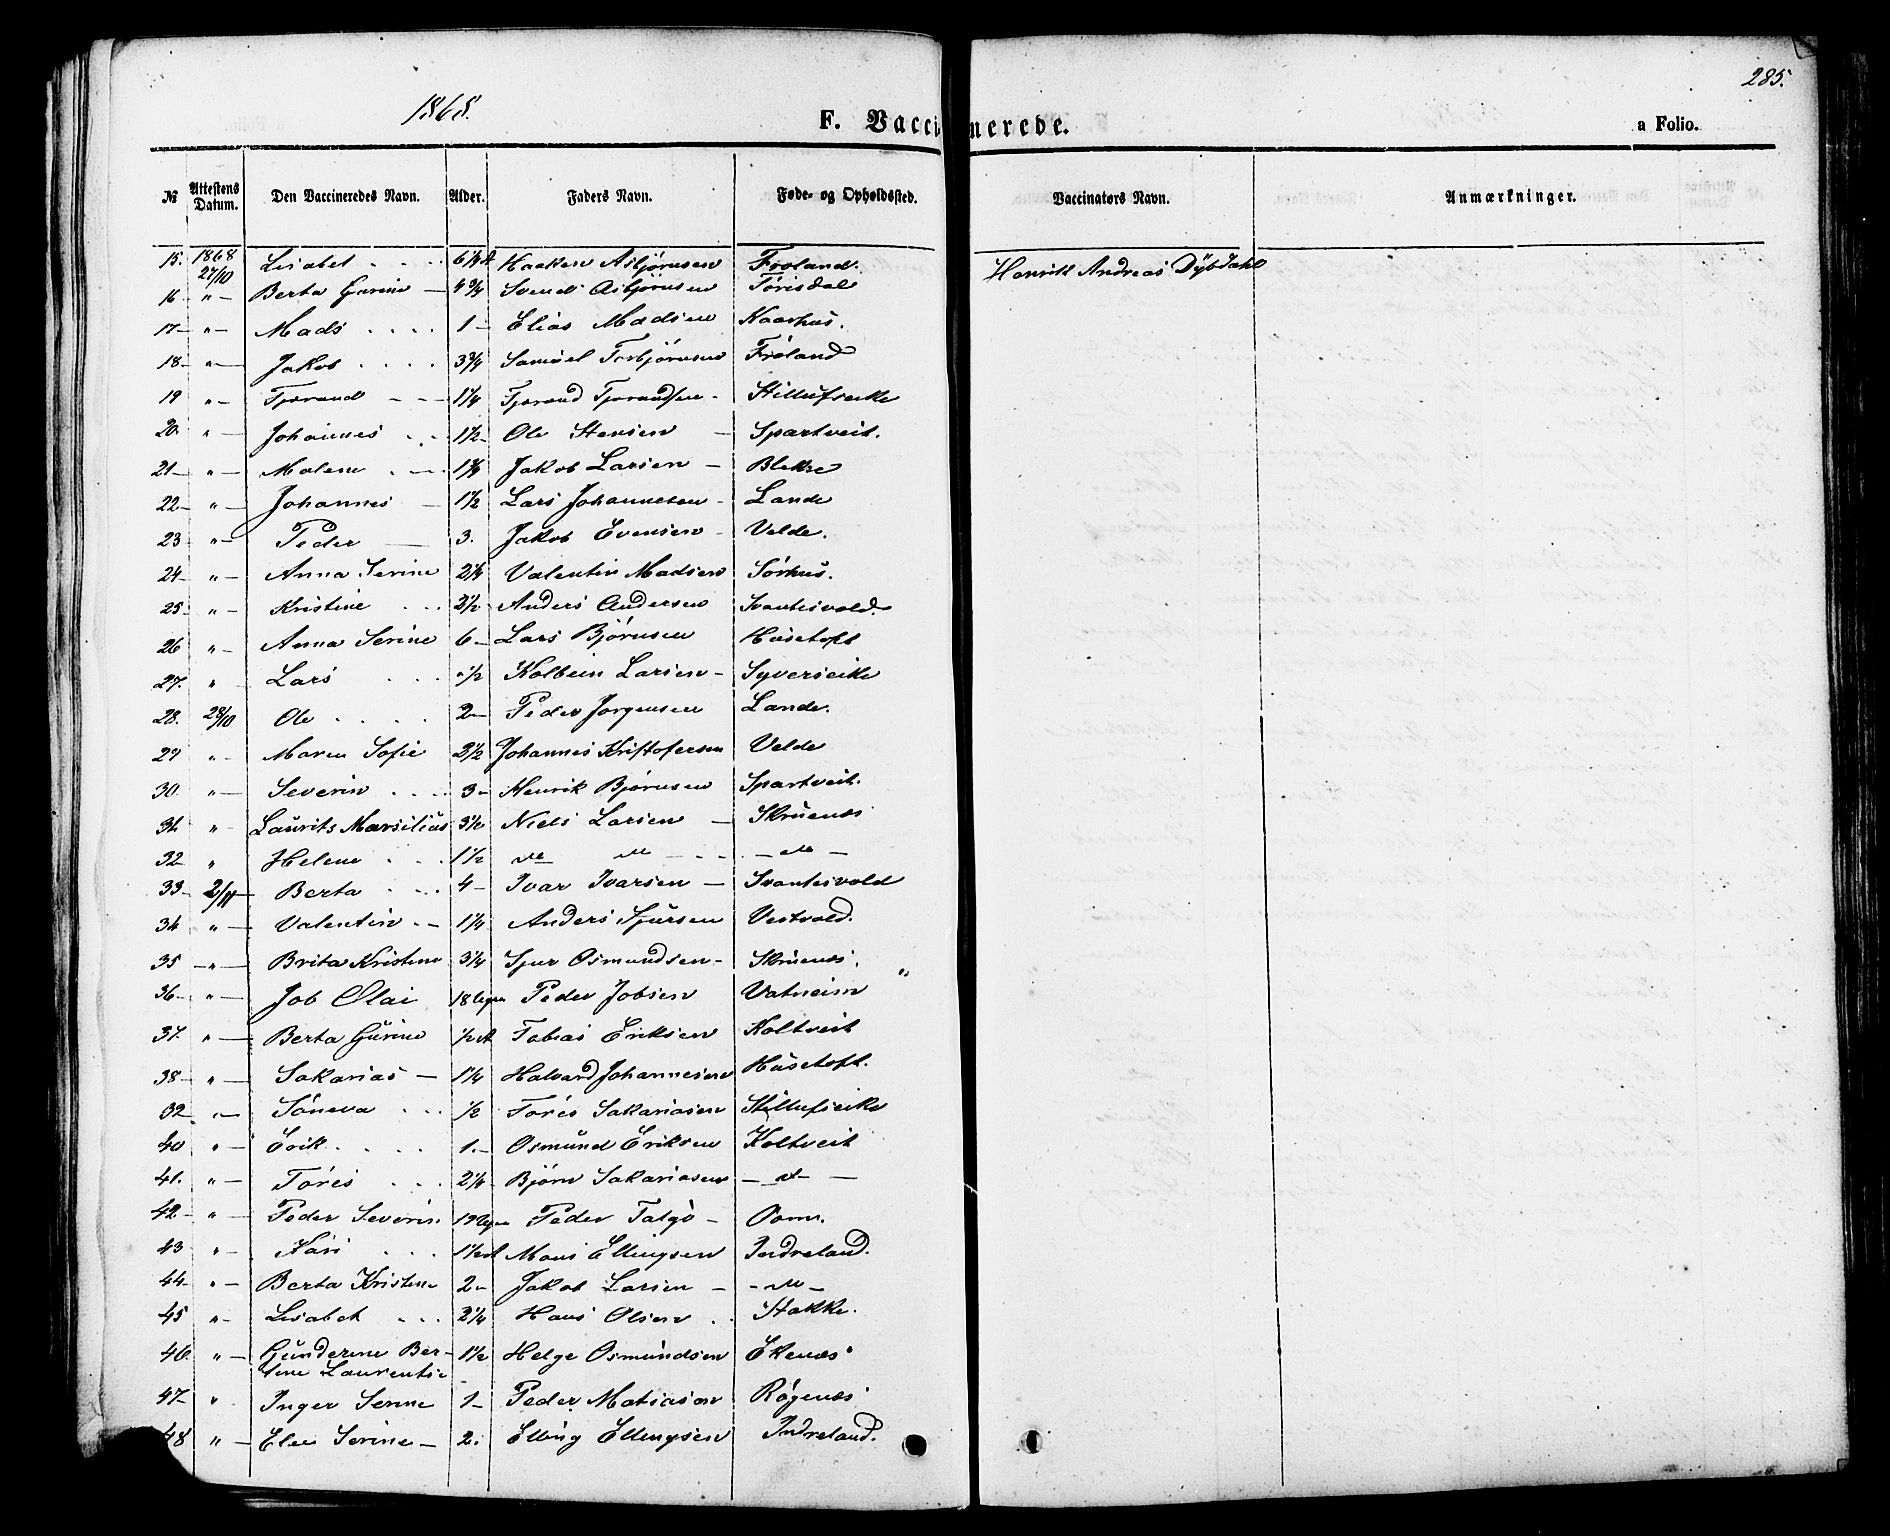 1868.
F. Vaccinerede.
285.
a Folio.
№ Attestens Datum. Den Vaccineredes Navn. Alder. Faders Navn. Føde- og Opholdssted. Vaccinators Navn. Anmærkninger.
15. 1868 27/10 Lisabet 6 1/4 A Haaken Asbjørnsen Frøland. Henrik Andreas Dybdahl
16 " Berta Gurine 4 3/4 Svend Asbjørnsen Tørisdal
17 " Mads 1 Elias Madsen Kaarhus.
18 " Jakob 3 3/4 Samuel Torbjørnsen Frøland
19 " Tjorand 1 1/4 Tjorand Tjorandsen
20 " Johannes 1 1/2 Ole Stensen Spartveit.
21 " Malene Jakob Larsen Blekre
22 " Johannes 1 1/2 Lars Johannesen Lande
23 " Peder 3. Jakob Evensen Velde.
24 " Anna Serine 2 1/4 Valentin Madsen Sørhus.
25 " Kristine 2 1/2 Anders Andersen Svantesvold.
26 " Anna Serine 6 Lars Bjørnsen Husetoft
27. " Lars 1/2 Kolbein Larsen Syverseike
28. 28/10 Ole 2 Peder Jørgensen Lande.
29 " Maren Sofie 2 1/2 Johannes Kristofersen Velde
30 " Severin 3 Henrik Bjørnsen Spartveit.
31. " Laurits Marsilius 3 1/2 Niels Larsen Skruenes
32 " Helene 1 1/2 do do do
33 2/11 Berta 4 Ivar Ivarsen Svantesvold
34 " Valentin 1 1/4 Anders Sjursen Vestvold.
35 " Brita Kristine 3 1/4 Sjur Osmundsen Skruenes.
36 " Job Olai 18 Uger Peder Jobsen Vatneim "
37. " Berta Gurine 1/2 A Tobias Eriksen Koltveit
38 " Sakarias 1 1/4 Halvard Johannesen Husetoft.
32 " Søneva 1/2 Tøres Sakariasen
40 " Erik 1. Osmund Eriksen Koltveit
41. " Tøres 2 1/4 Bjørn Sakariasen d
42 " Peder Severin 19 Uger Peder Talgø
43 " Kari 1 1/2 A Mons Ellingsen Indreland.
44 " Berta Kristine 2 Jakob Larsen do
45 " Lisabet 2 1/4 Hans Olsen Stakke.
46 " Gunderine Ber- 1 1/2 Helge Osmundsen Ekenes
tine Laurentse
47 " Inger Serine 1 Peder Matiasen Røgenes
48 " Elen Serine 2. Elling Ellingsen Indreland.